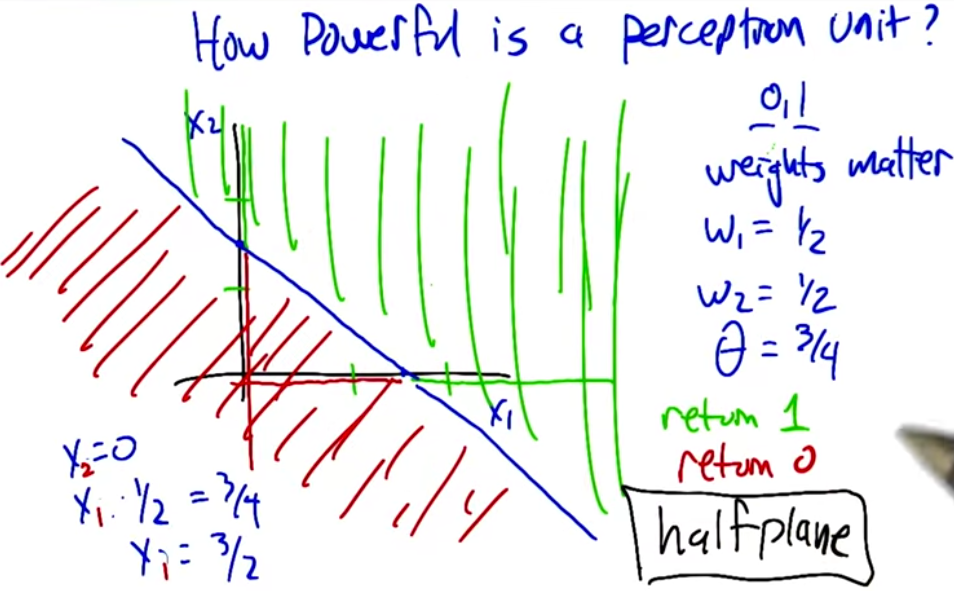 How Powerful is a perceptron unit?
0,1
weights matter
w₁ = 1/2
w₂ = 1/2
θ = 3/4
return 1
return 0
halfplane
x₂
x₁
x₂=0
x₁ · 1/2 = 3/4
x₁ = 3/2